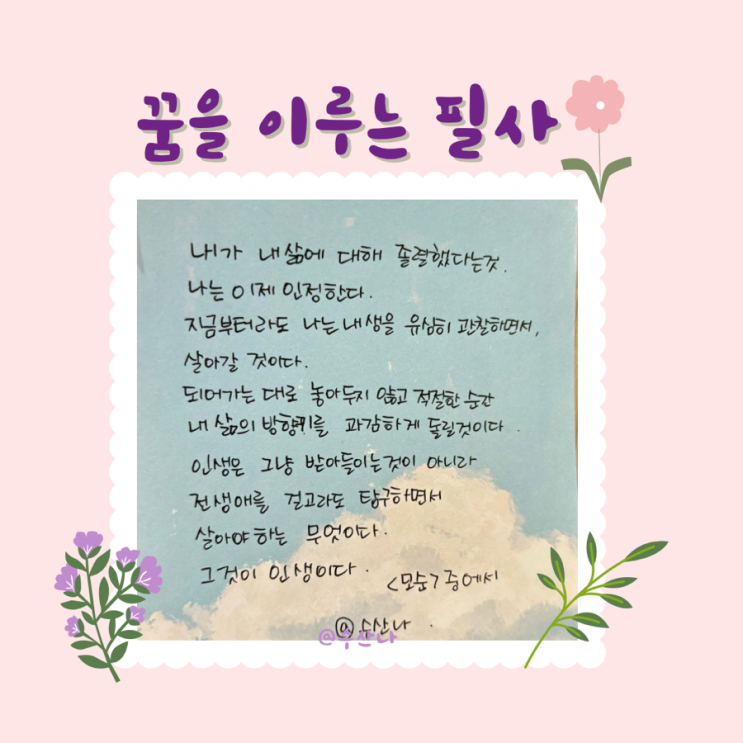 꿈을 이루는 필사
내가 내삶에 대해 졸렬했다는것.
나는 이제 인정한다.
지금부터라도 나는 내생을 유심히 관찰하면서,
살아갈 것이다.
되어가는 대로 놓아두지 않고 적절한 순간
내 삶의 방향키를 과감하게 돌릴것이다.
인생은 그냥 받아들이는것이 아니라
전생애를 걸고라도 탐구하면서
살아야하는 무엇이다.
그것이 인생이다. <모순> 중에서
@수산나
@수산나